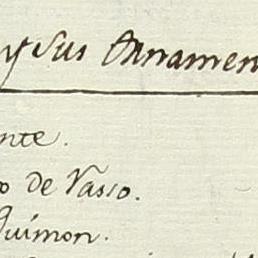 y sus Ornamen
nte.
o de Vasso.
Quimon.